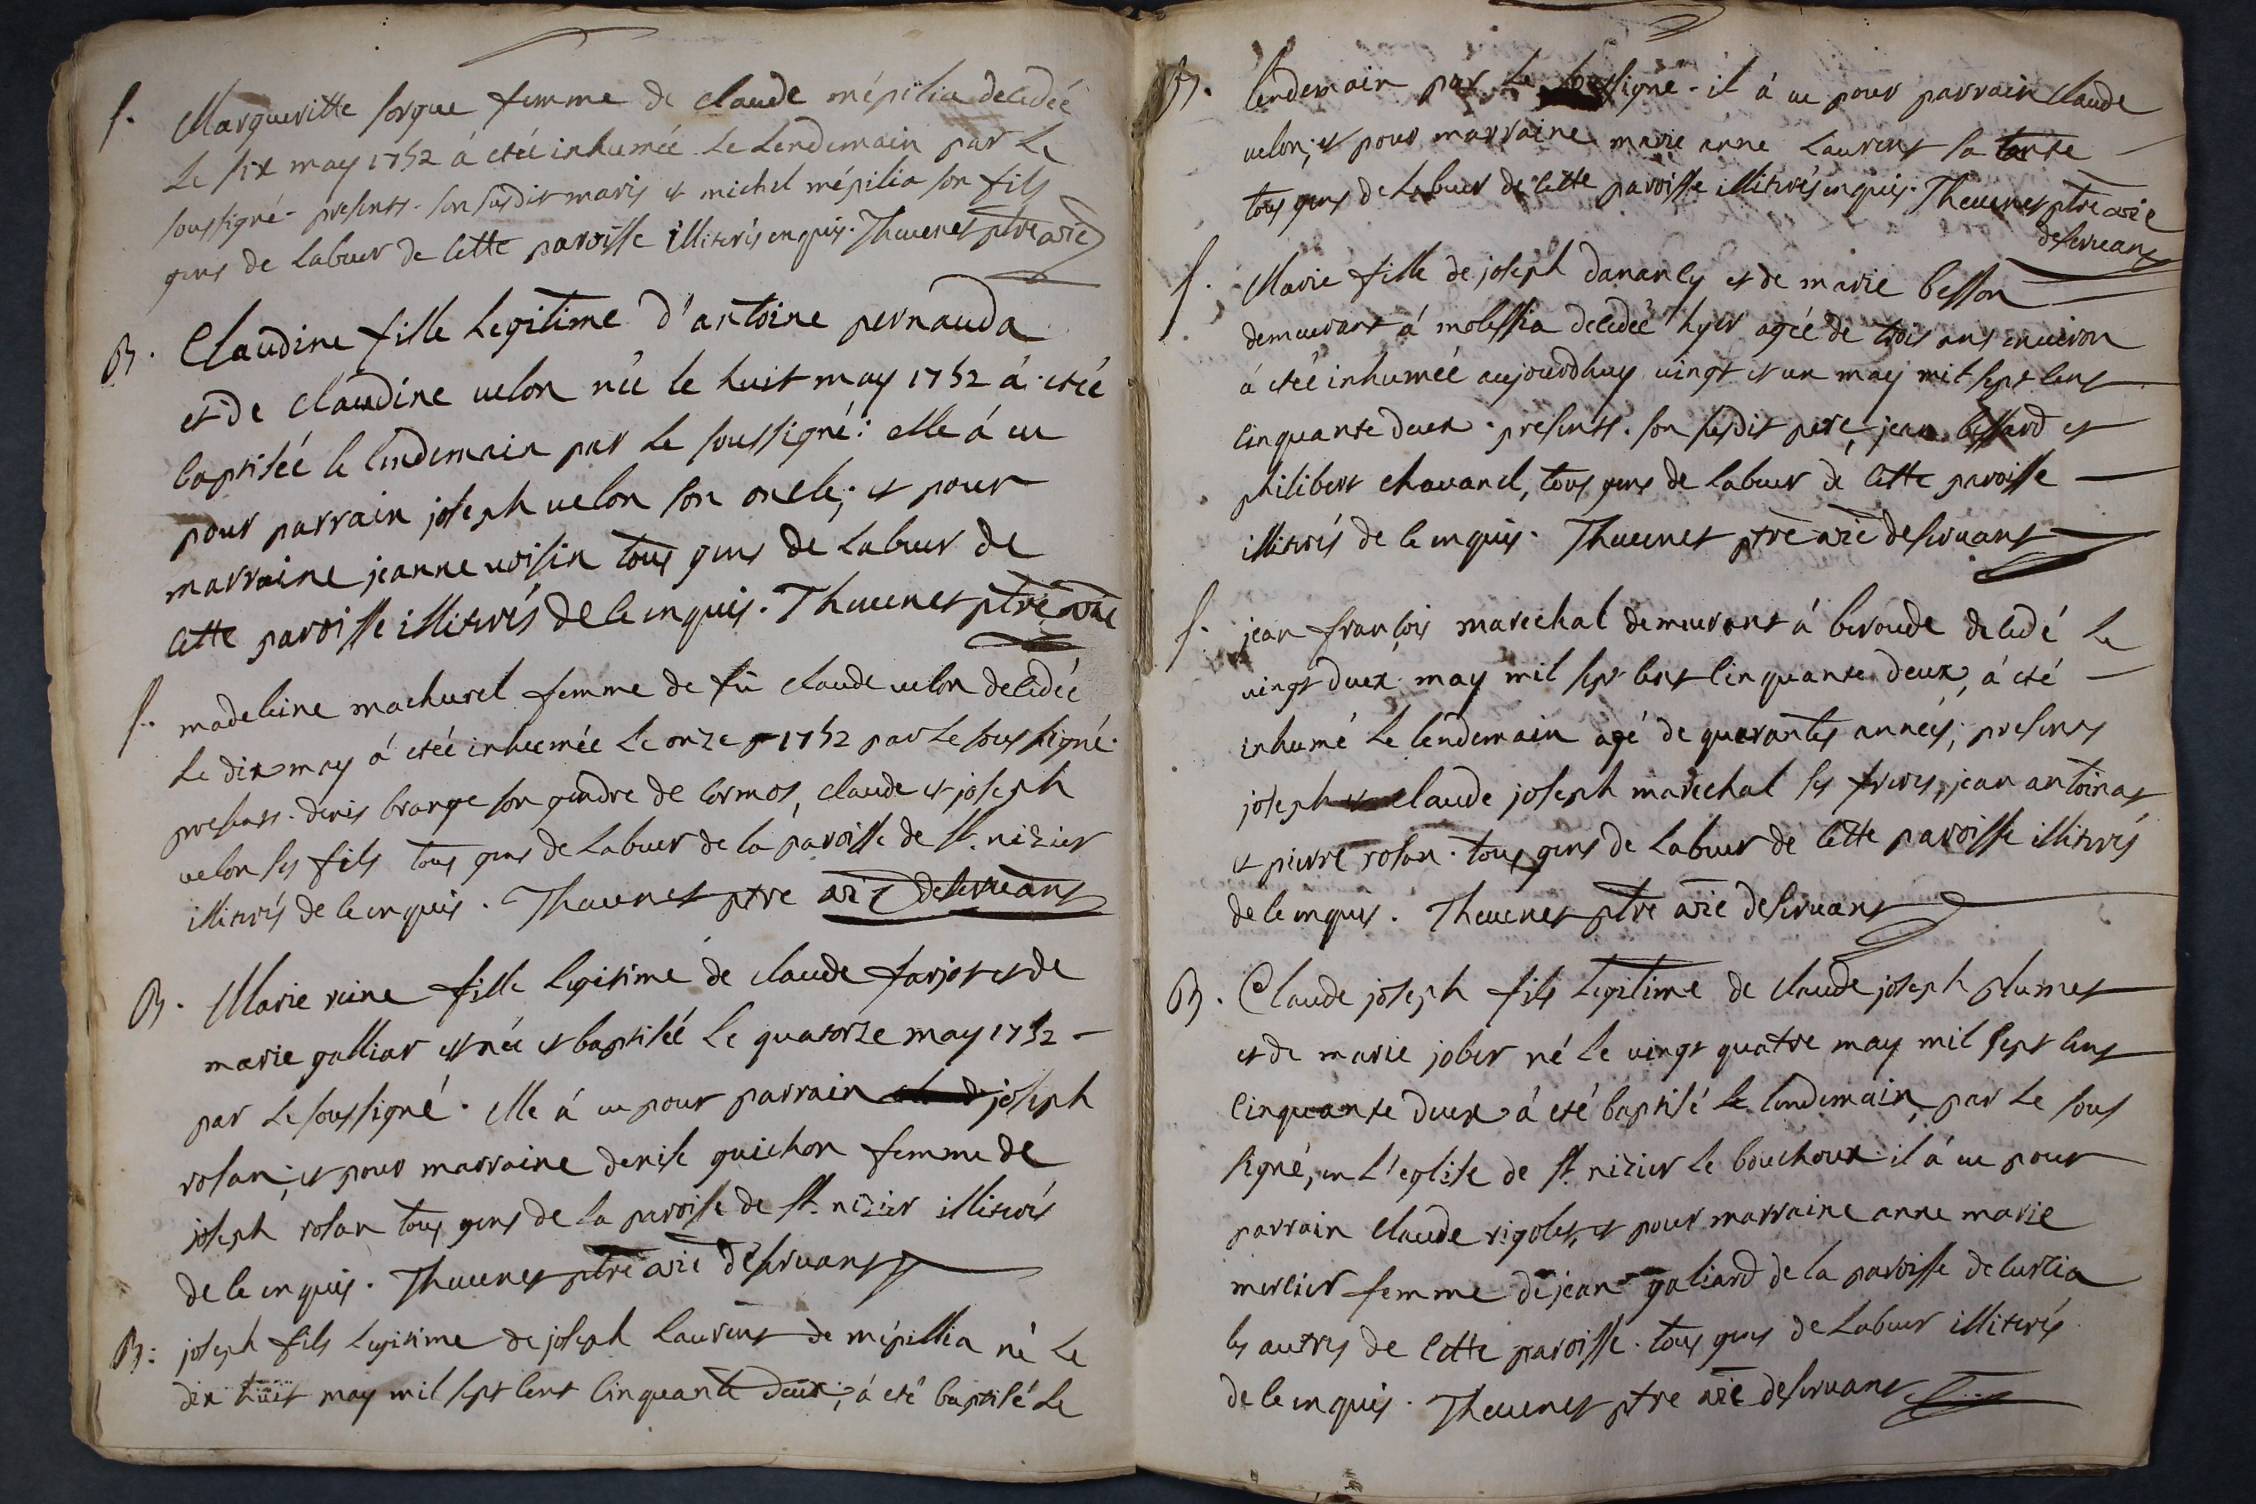 S. Margueritte sorgue femme de claude mépilia decedée
Le six may 1752 á etée inhumée Le Lendemain par Le
soussigné. presents. son susdit maris et michel mépilia son fils
gens de Labeur de cette paroisse illiterés enquis. Theuenet ptre vic
B. Claudine fille Legitime d'antoine pernauda
et de claudine uelon née le huit may 1752 á etée
baptisée le lendemain par Le soussigné: elle á eu
pour parrain joseph uelon son oncle; et pour
marraine jeanne uoisin tous gens de Labeur de
cette paroisse illiterés de ce enquis. Theuenet ptre vic
S. madeleine machurel femme de fû claude uelon decedée
Le dix may á etée inhumée Le onze 1752 par Le soussigné.
presents. denis brange son gendre de cormos, claude et joseph
uelon ses fils tous gens de Labeur de la paroisse de st. nizier
illiterés de ce enquis. Theuenet ptre vic deseruant
B. Marie reine fille Legitime de claude farjot et de
marie galliar est née et baptisée Le quatorze may 1752
par Le soussigné. elle á eu pour parrain joseph
rolan; et pour marraine denise guichon femme de
joseph rolan tous gens de La paroisse de st. nizier illiterés
de ce enquis. Theuenet ptre vic deseruant
B: joseph fils Legitime de joseph Laurent de mépillia né Le
dix huit may mil sept cent cinquante deux; á eté baptisé Le
B. lendemain par Le soussigné. il á eu pour parrain claude
uelon; et pour marraine marie anne Laurent sa tante
tous gens de Labeur de cette paroisse illiterés enquis. Theuenet ptre vic
deseruant
S. Marie fille de joseph dananly et de marie besson
demeurant á molissia decedée hyer agée de trois ans enuiron
á etée inhumée aujourdhuy uingt et un may mil sept cent
cinquante deux. presents. son susdit pere, jean bessard et
philibert chauanel, tous gens de Labeur de cette paroisse
illiterés de ce enquis. Theuenet ptre vic deseruant
S. jean françois marechal demeurant á beroude decedé Le
uingt deux may mil sept cent cinquante deux, á eté
inhumé Le lendemain agé de quarantes années; presents
joseph et claude joseph marechal ses freres, jean antoinat
et pierre rolan. tous gens de Labeur de cette paroisse illiterés
de ce enquis. Theuenet ptre vic deseruant
B. Claude joseph fils Legitime de claude joseph plumet
et de marie jober né le uingt quatre may mil sept cent
cinquante deux á eté baptisé Le lendemain par Le sous
signé, en L'eglise de st. nizier Le bouchoux il á eu pour
parrain claude rigolet, et pour marraine anne marie
mercier femme de jean galiard de la paroisse de curtia
les autres de cette paroisse. tous gens de Labeur illiterés
de ce enquis. Theuenet ptre vic deseruant